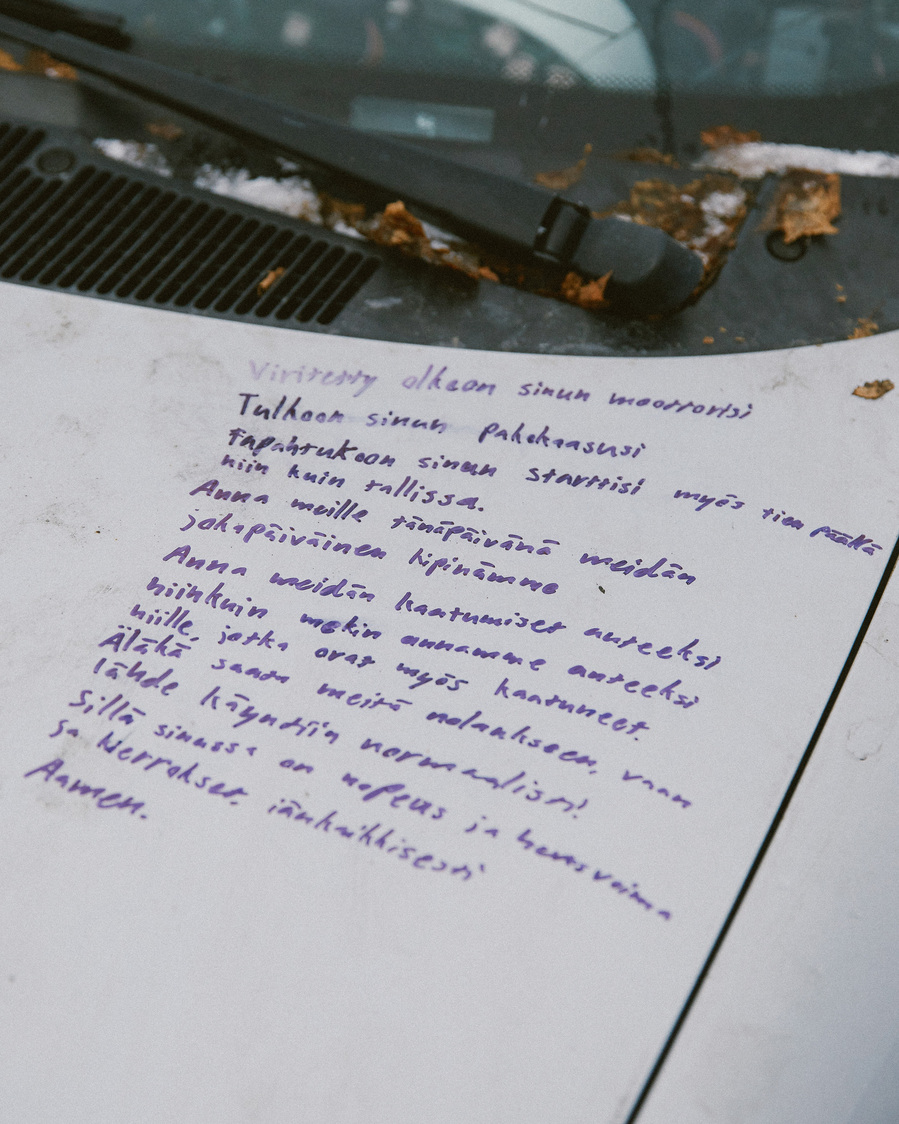 Viritetty olkoon sinun moottorisi
Tulkoon sinun pakokaasusi
tapahtukoon sinun starttisi myös tien päällä
niin kuin tallissa.
Anna meille tänäpäivänä meidän
jokapäiväinen kipinämme
Anna meidän kaatumiset anteeksi
niinkuin mekin annamme anteeksi
niille, jotka ovat myös kaatuneet.
Äläkä saata meitä nolaukseen, vaan
lähde käyntiin normaalisti!
Sillä sinussa on nopeus ja hevosvoima
ja kierrokset. iänkaikkisesti
Aamen.